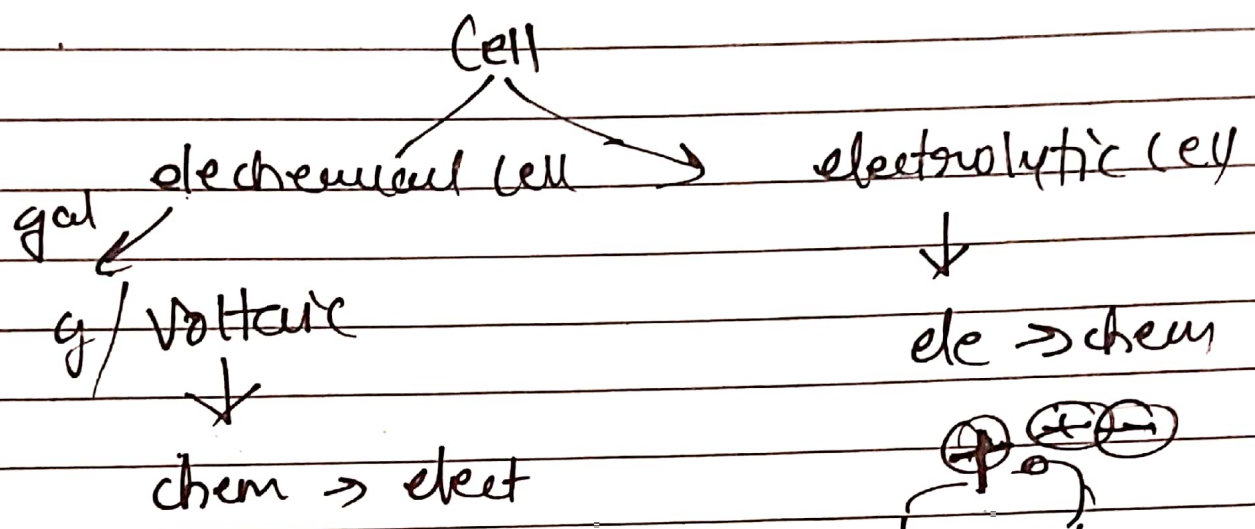 Cell
elechemical cell electrolytic cell
gal
g/ Voltaic
ele → chem
chem → elect